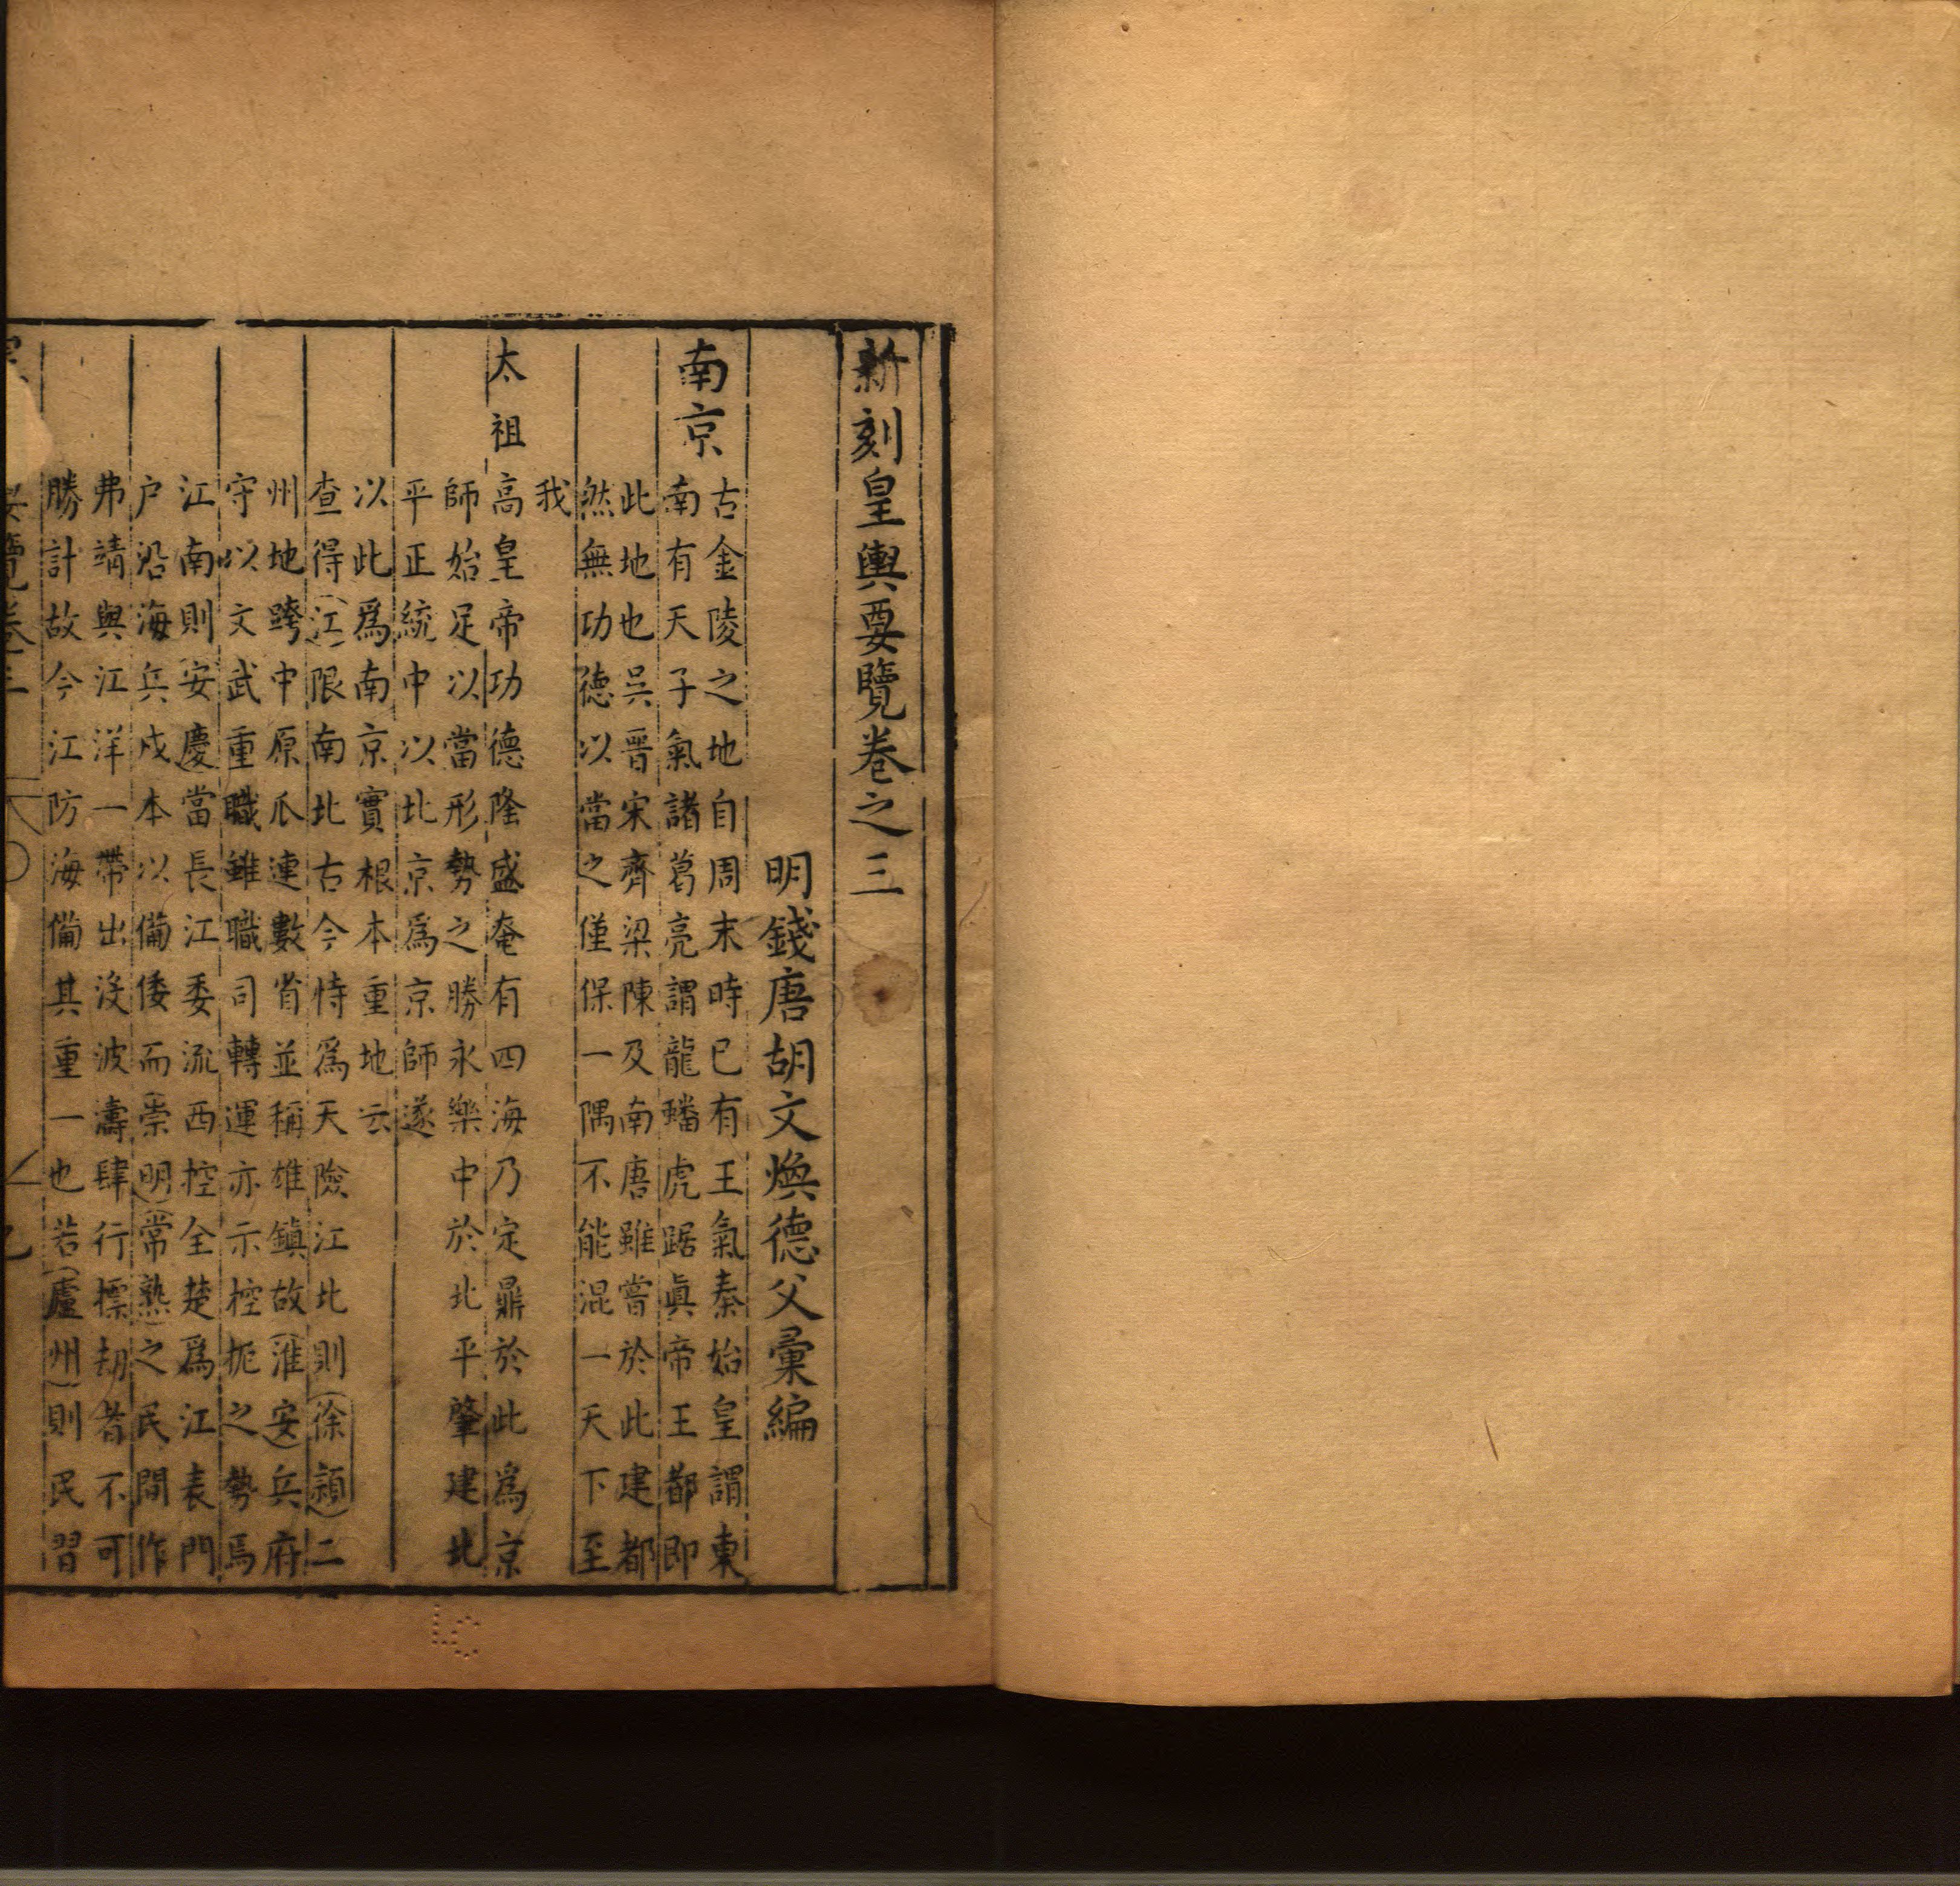 新刻皇輿要覽卷之三
明錢唐胡文煥德父彙編
南京
古金陵之地自周末時已有王氣秦始皇謂東
南有天子氣諸葛亮謂龍蟠虎踞真帝王都即
此地也吳晉宋齊梁陳及南唐雖嘗於此建都
然無功德以當之僅保一隅不能混一天下至
我
太祖高皇帝功德隆盛奄有四海乃定鼎於此為京
師始足以當形勢之勝永樂中於北平肇建北
平正統中以北京爲京師遂
以此爲南京實根本重地云
查得江限南北古今恃爲天險江北則徐潁二
州地跨中原瓜連數省並稱雄鎮故淮安兵府
守以文武重職雖職司轉運亦示控扼之勢焉
江南則安慶當長江委流西控全楚爲江表門
户沿海兵戍本以備倭而崇明常熟之民間作
弗靖與江洋一帶出沒波濤肆行摽刼者不可
勝計故今江防海備其重一也若廬州則民習
覽卷三